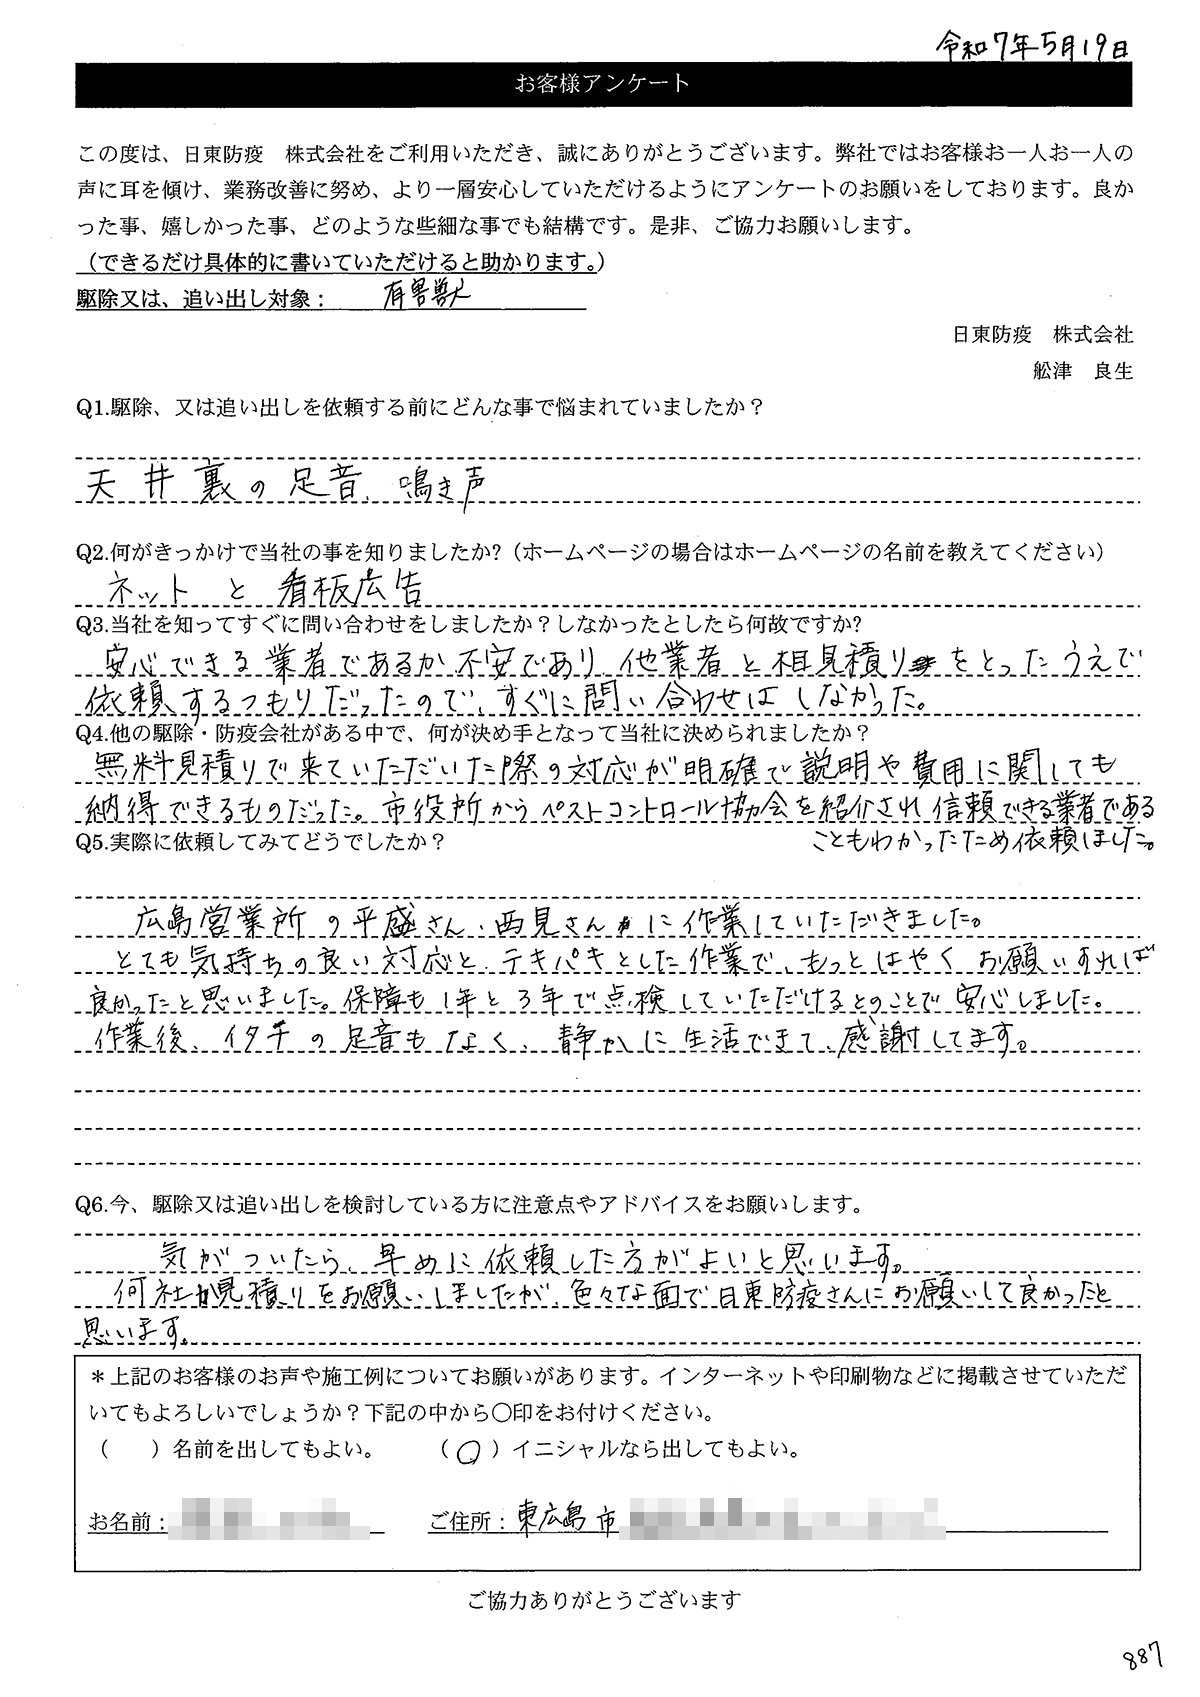 令和7年5月19日
お客様アンケート
この度は、日東防疫　株式会社をご利用いただき、誠にありがとうございます。弊社ではお客様お一人お一人の
声に耳を傾け、業務改善に努め、より一層安心していただけるようにアンケートのお願いをしております。良か
った事、嬉しかった事、どのような些細な事でも結構です。是非、ご協力お願いします。
（できるだけ具体的に書いていただけると助かります。）
駆除又は、追い出し対象： 有害獣
日東防疫　株式会社
舩津　良生
Q1.駆除、又は追い出しを依頼する前にどんな事で悩まれていましたか？
天井裏の足音、鳴き声
Q2.何がきっかけで当社の事を知りましたか?（ホームページの場合はホームページの名前を教えてください）
ネット と 看板広告
Q3.当社を知ってすぐに問い合わせをしましたか？しなかったとしたら何故ですか?
安心できる業者であるか不安であり、他業者と相見積りをとったうえで
依頼するつもりだったので、すぐに問い合わせはしなかった。
Q4.他の駆除・防疫会社がある中で、何が決め手となって当社に決められましたか？
無料見積りで来ていただいた際の対応が明確で説明や費用に関しても
納得できるものだった。市役所からペストコントロール協会を紹介され信頼できる業者である
こともわかったため依頼しました。
Q5.実際に依頼してみてどうでしたか？
広島営業所の平盛さん、西見さんに作業していただきました。
とても気持ちの良い対応と、テキパキとした作業で、もっとはやくお願いすれば
良かったと思いました。保障も1年と3年で点検していただけるとのことで安心しました。
作業後、イタチの足音もなく、静かに生活できて、感謝してます。
Q6.今、駆除又は追い出しを検討している方に注意点やアドバイスをお願いします。
気がついたら、早めに依頼した方がよいと思います。
何社か見積りをお願いしましたが、色々な面で日東防疫さんにお願いして良かったと
思います。
＊上記のお客様のお声や施工例についてお願いがあります。インターネットや印刷物などに掲載させていただ
いてもよろしいでしょうか？下記の中から〇印をお付けください。
（　　）名前を出してもよい。　　（〇）イニシャルなら出してもよい。
お名前：　　ご住所：東広島市
ご協力ありがとうございます
887